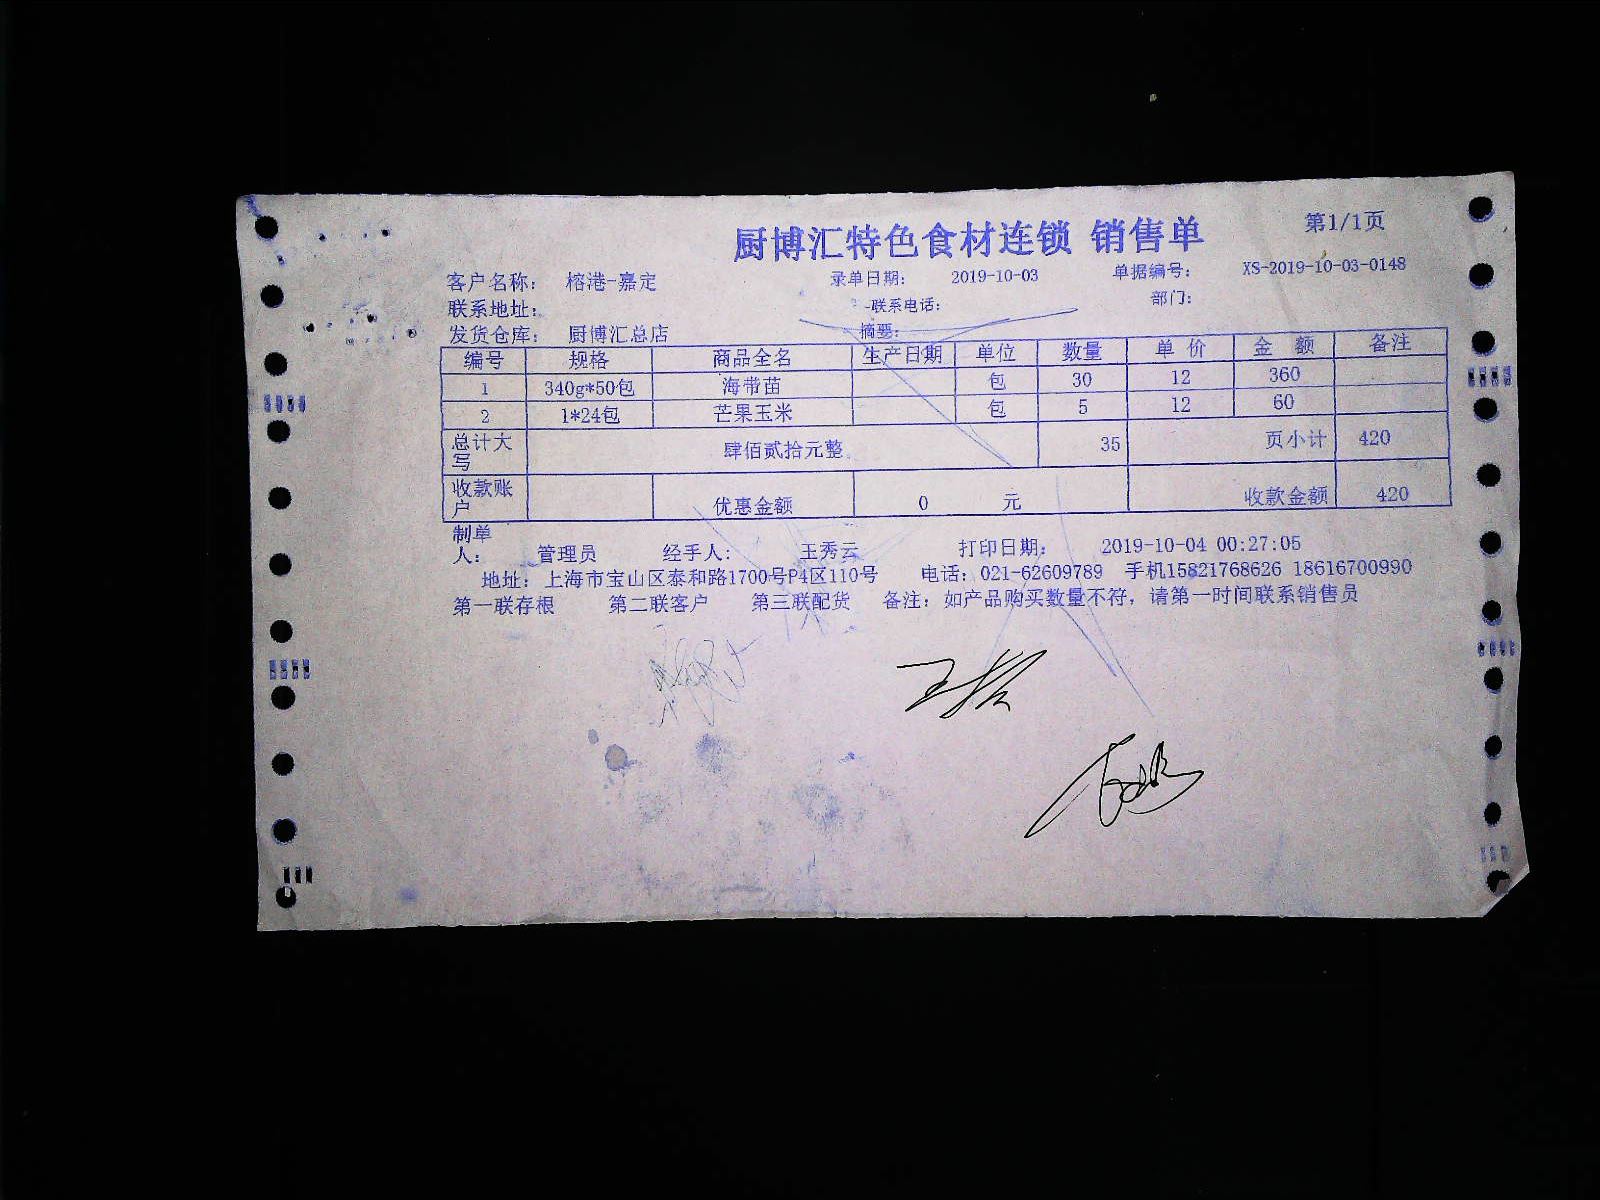 厨博汇特色食材连锁 销售单 第1/1页
客户名称： 榕港-嘉定 录单日期： 2019-10-03 单据编号： XS-2019-10-03-0148
联系地址： -联系电话： 部门：
发货仓库： 厨博汇总店 摘要：
编号 规格 商品全名 生产日期 单位 数量 单 价 金 额 备注
1 340g*50包 海带苗 包 30 12 360
2 1*24包 芒果玉米 包 5 12 60
总计大写 肆佰贰拾元整 35 页小计 420
收款账户 优惠金额 0 元 收款金额 420
制单人： 管理员 经手人： 王秀云 打印日期： 2019-10-04 00:27:05
地址：上海市宝山区泰和路1700号P4区110号 电话：021-62609789 手机15821768626 18616700990
第一联存根 第二联客户 第三联配货 备注：如产品购买数量不符，请第一时间联系销售员